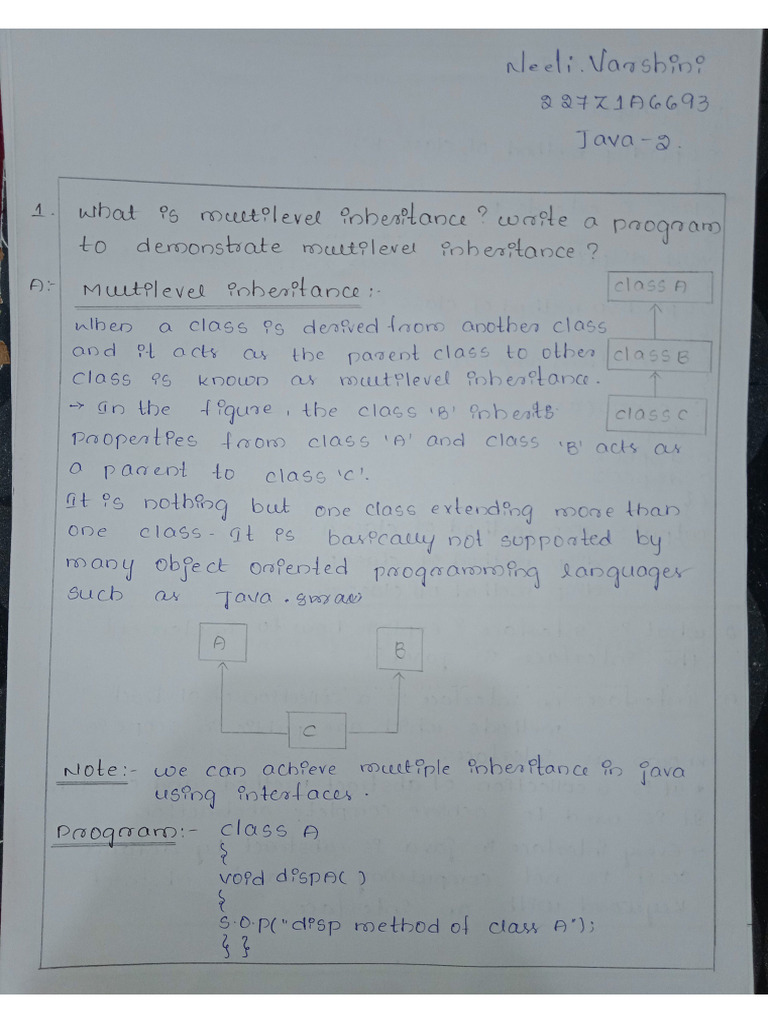 Neeli. Varshini
227Z1A6693
Java-2.
1. What is multilevel inheritance? write a program
to demonstrate multilevel inheritance?
A:- Multilevel inheritance:-
class A
When a class is derived from another class
and it acts as the parent class to other
class B
class is known as multilevel inheritance.
→ In the figure, the class 'B' inherits
class C
properties from class 'A' and class 'B' acts as
a parent to class 'C'.
It is nothing but one class extending more than
one class. It is basically not supported by
many object oriented programming languages
such as Java.
A
B
C
Note:- we can achieve multiple inheritance in java
using interfaces.
Program:- class A
{
void dispA( )
{
S.O.P("disp method of class A");
} }